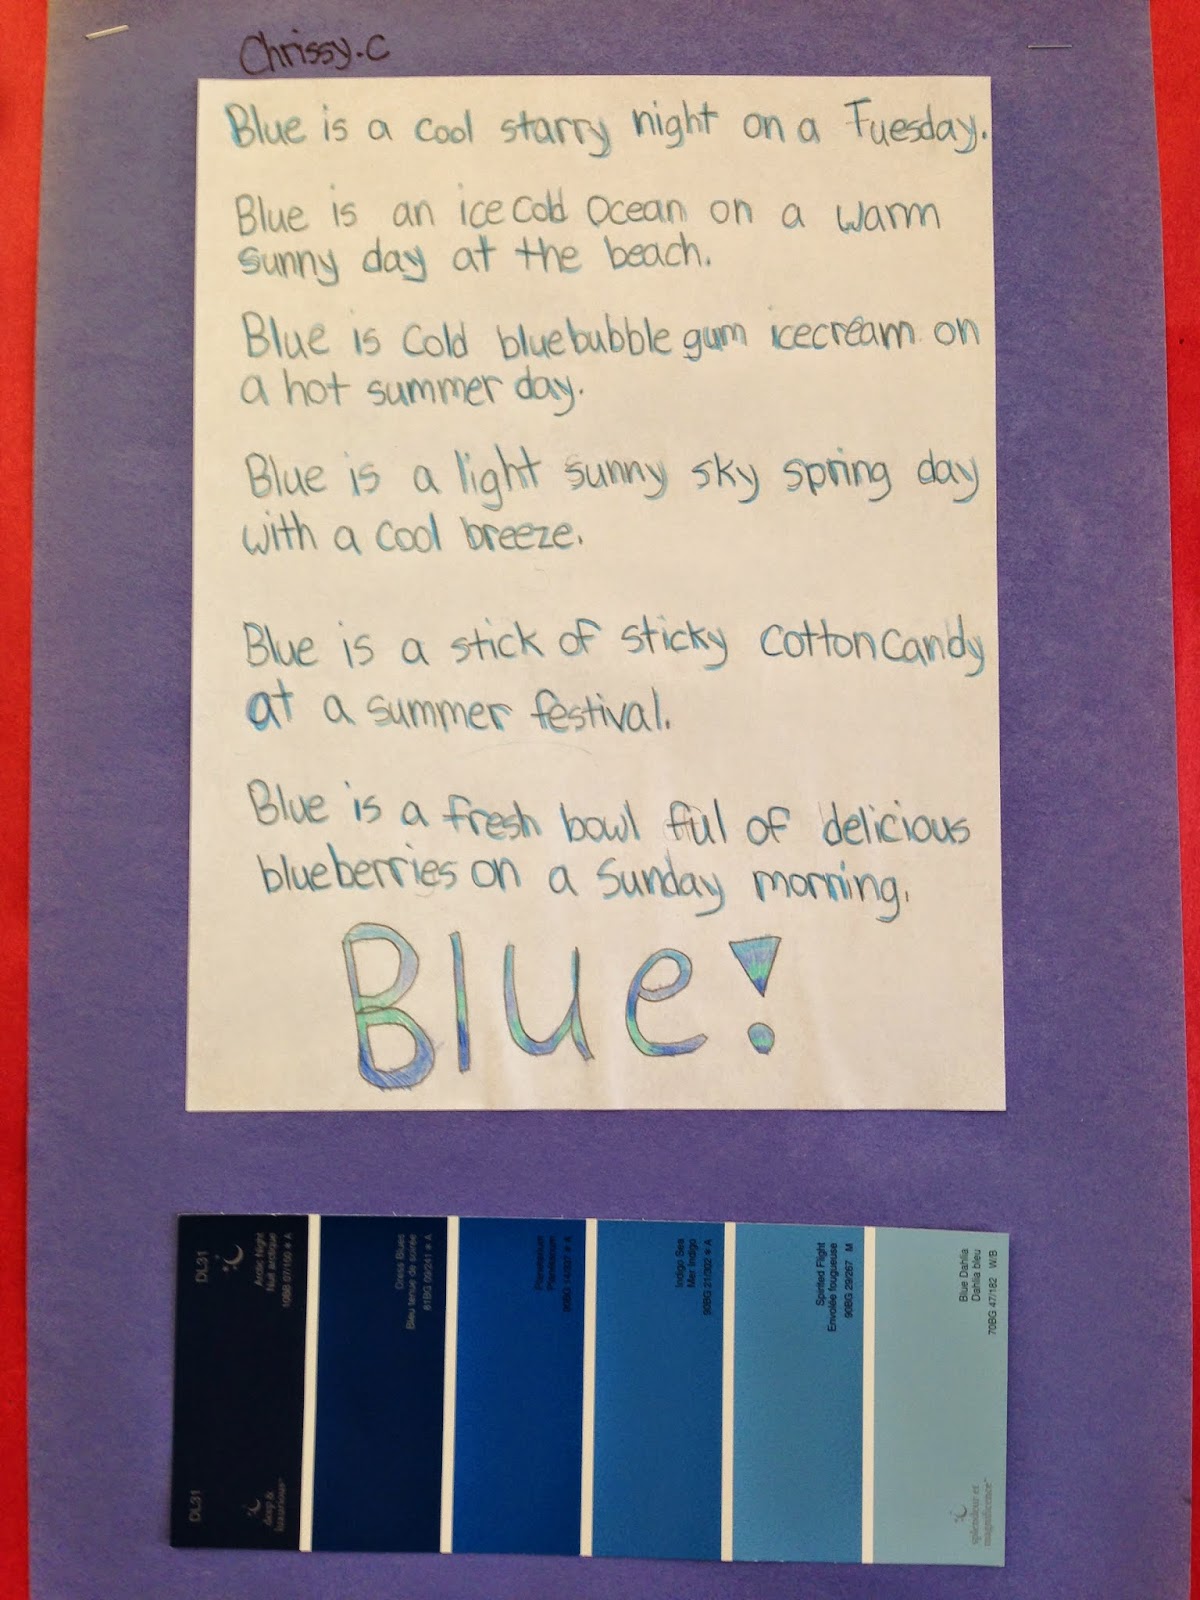 Chrissy.C
Blue is a cool starry night on a Tuesday.
Blue is an icecold ocean on a warm
sunny day at the beach.
Blue is cold bluebubble gum icecream on
a hot summer day.
Blue is a light sunny sky spring day
with a cool breeze.
Blue is a stick of sticky cottoncandy
at a summer festival.
Blue is a fresh bowl ful of delicious
blueberries on a Sunday morning.
Blue!
DL31
Arctic Night
Nuit arctique
10BB 07/150 * A
DL31
deep &
luxurious
Dress Blues
Bleu tenue de soirée
81BG 09/241 * A
Indigo Sea
Mer Indigo
90BG 21/302 * A
Spirited Flight
Envolée fougueuse
90BG 29/267 M
Blue Dahlia
Dahlia bleu
70BG 47/182 W/B
splendeur et
magnificence